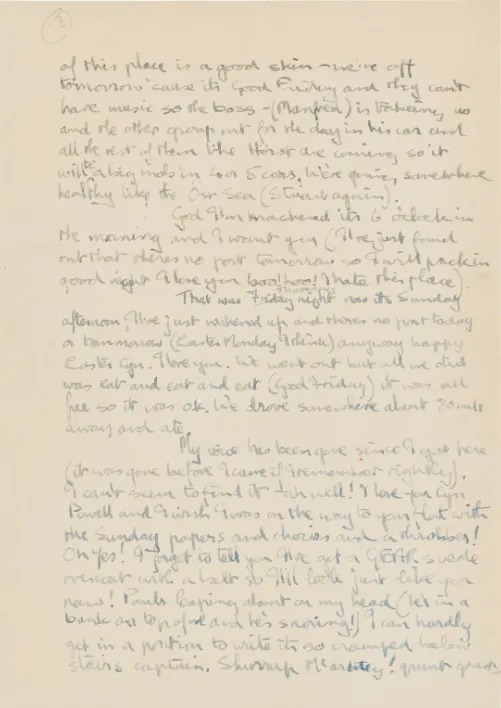 2
of this place is a good skin – we're off
tomorrow 'cause its Good Friday and they cant
have music so the boss – (Manfred) is taking us
and the other group out for the day in his car and
all the rest of them like Horst are coming so it
will be a big mob in 4 or 5 cars. We're going somewhere
healthy like the Ost Sea (Stuart again).
God I'm knackered its 6 o'clock in
the morning and I want you (I've just found
out that theres no post tomorrow so I will pack in
good night I love you boo! hoo! I hate this place).
That was Friday Thursday night now its Sunday
afternoon, I've just wakened up and theres no post today
or tommorrow (Easter Monday I think) anyway happy
Easter Cyn. I love you. We went out but all we did
was eat and eat and eat (Good Friday) it was all
free so it was ok. We drove somewhere about 80 mls
away and ate.
My voice has been gone since I got here
(it was gone before I came if I remember rightly).
I can't seem to find it – ah well! I love you Cyn
Powell and I wish I was on the way to your flat with
the Sunday papers and chocies and a throbber!
Oh Yes! I forgot to tell you I've got a GEAR suede
overcoat with a belt so I'll look just like you
now! Pauls leaping about on my head (he's in a
bunk on top of me and he's snoring!) I can hardly
get in a position to write its so cramped below
stairs captain. Shurrup Mcartney! grunt grunt